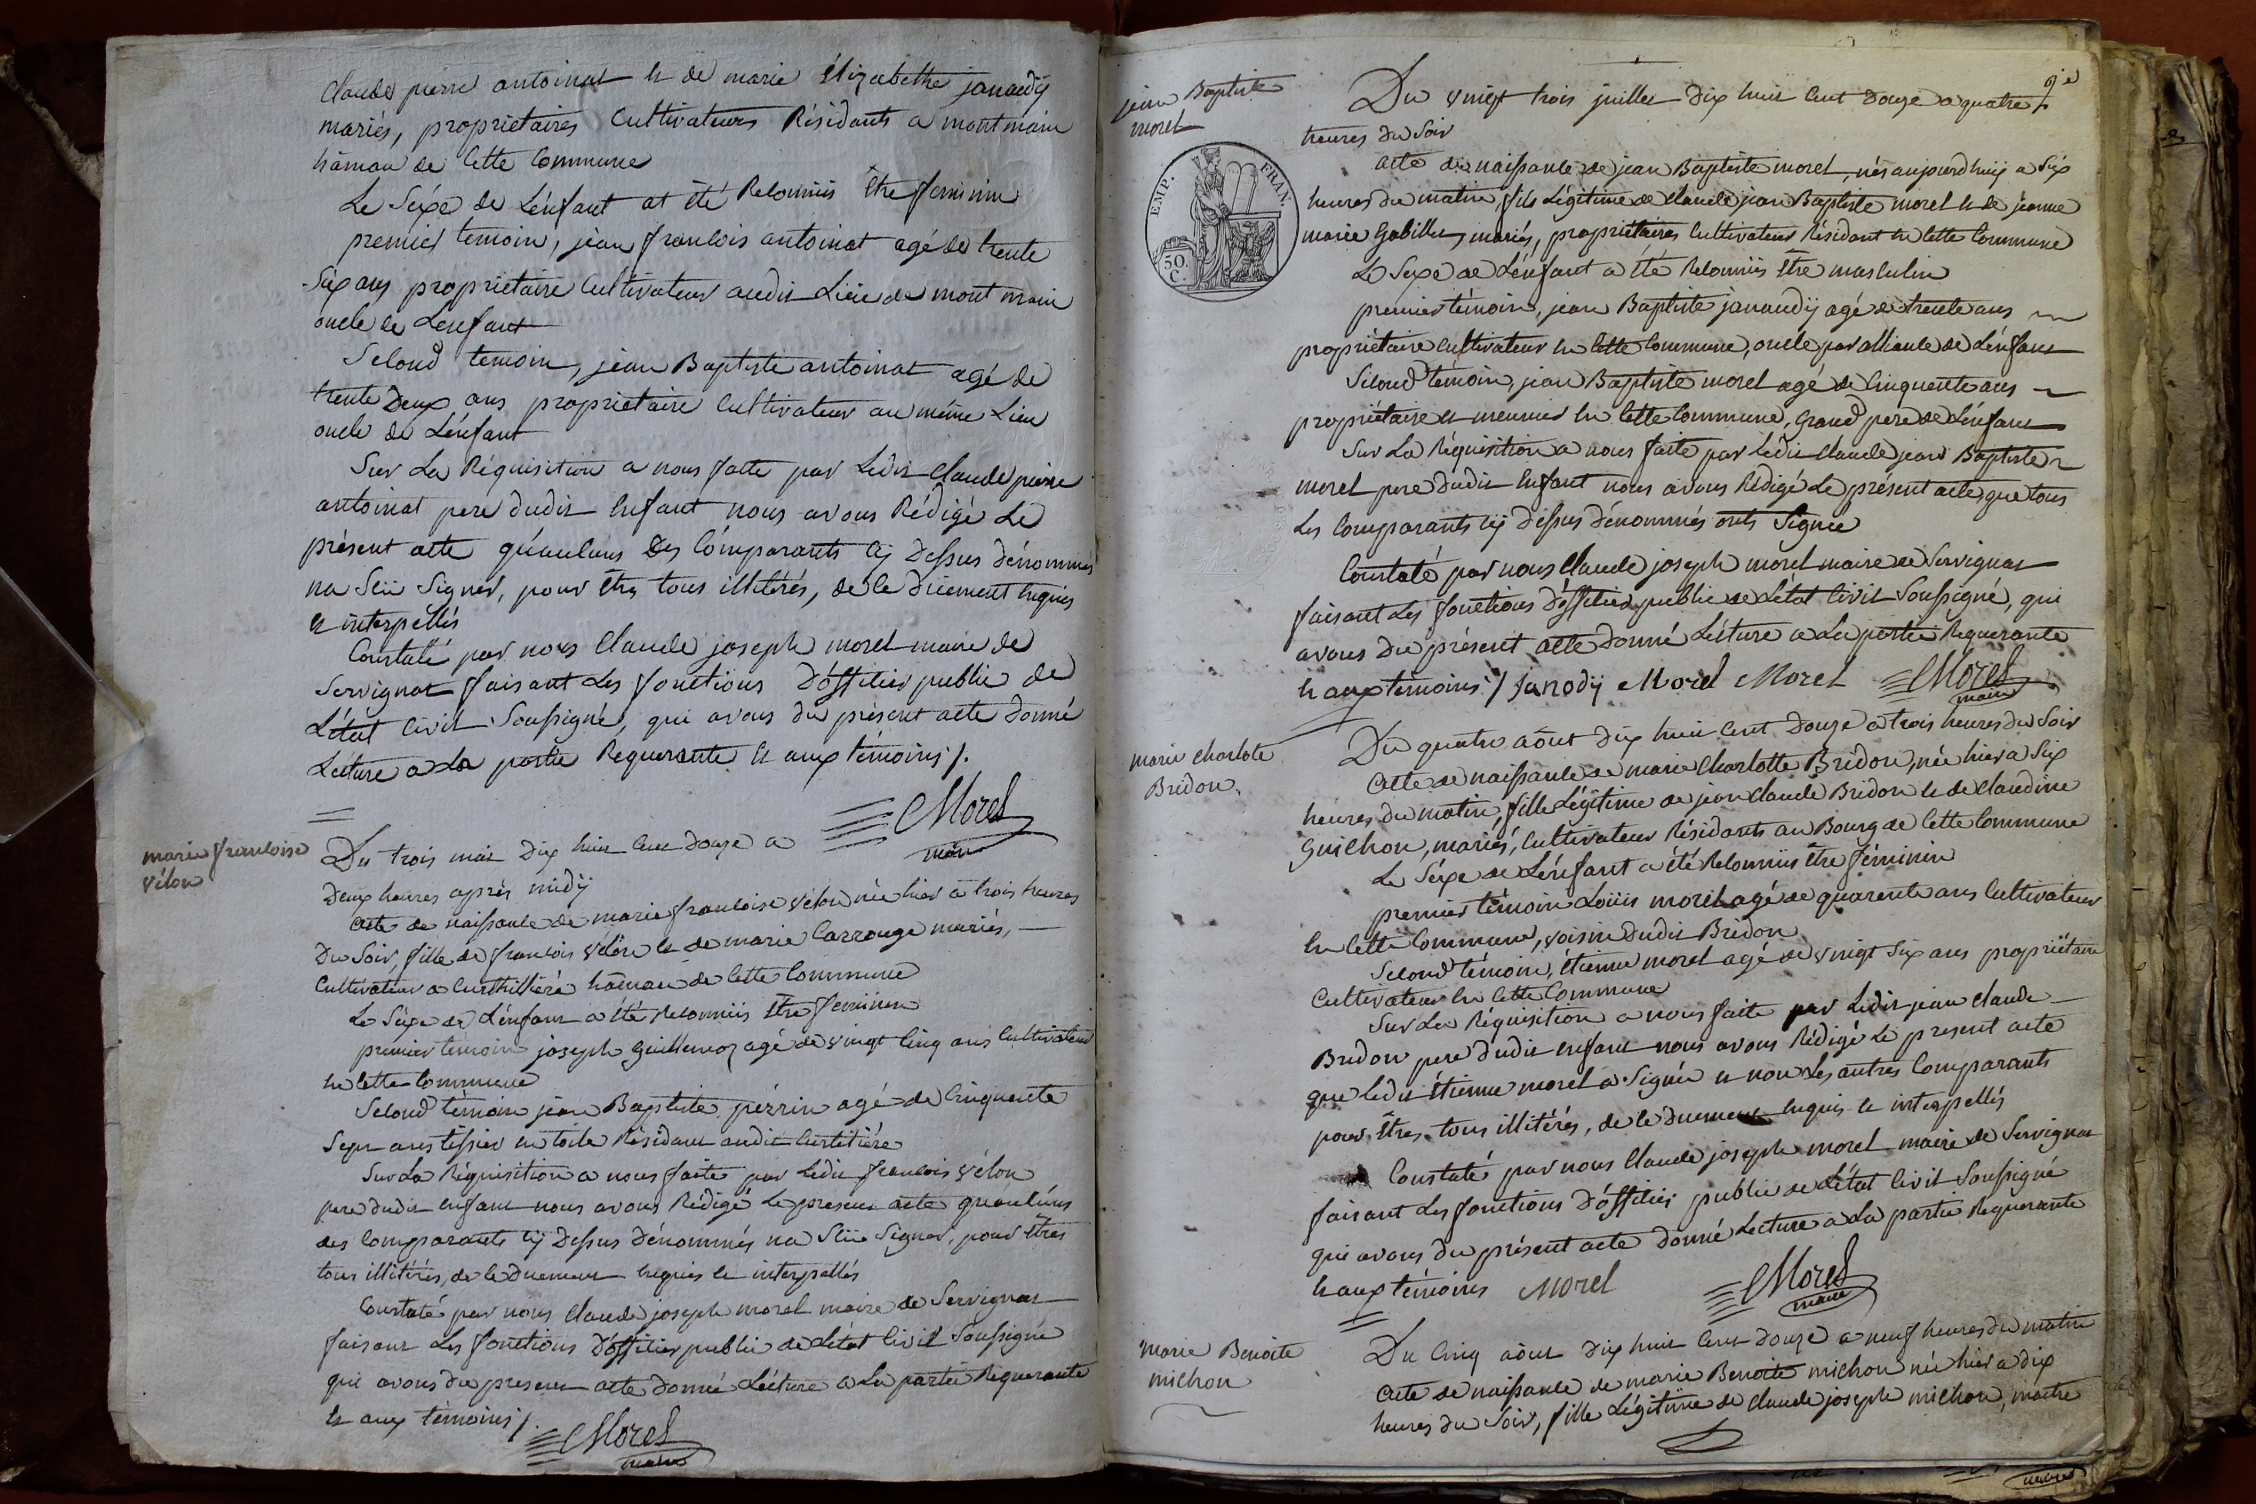 Claude pierre antoinat et de marie élizabethe janaudÿ
mariés, propriétaires Cultivateurs Résidants a montmain
hâmau de Cette Commune
Le Séxe de L'énfant at été Reconnüs être feminin
premier temoin, jean francois antoinat agé de trente
Six ans propriétaire Cultivateur audit Lieu de mont main
oncle de Lenfant
Second temoin, jean Baptiste antoinat agé de
trente Deux ans propriétaire Cultivateur au même Lieu
oncle de L'énfant
Sur La Réquisition a nous faite par Ledit Claude pierre
antoinat pere dudit Enfant nous avons Rédigé Le
présent acte qu'aucuns Des Comparants Cÿ Dessus dénommés
na Scü Signer, pour être tous illitérés, de ce duement Enquis
et interpellés
Constaté par nous Claude joseph morel maire de
Servignat faisant Les fonctions D'officier public de
L'état Civil Soussigné, qui avons du présent acte donné
Lécture a La partie Requerante et aux témoins /.
Morel
maire
marie francoise
vélon
Du trois mai Dix huit Cent douze a
Deux heures après midÿ
Acte de naissance de marie francoise vélon née hier a trois heures
Du Soir, fille de francois vélon et de marie Carrouge mariés,
Cultivateur a hâmau de Cette Commune
Le Séxe de L'énfant a été Reconnüs être feminin
premier temoin joseph Guillemoz agé de vingt Cinq ans Cultivateur
en Cette Commune
Second témoin jean Baptiste pérrin agé de Cinquante
Sept ans tissier en toile Résidant audit
Sur La Réquisition a nous faite par Ledit francois vélon
pere dudit enfant nous avons Rédigé Le présent acte qu'aucuns
des Comparants Cÿ Dessus dénommés na Scü Signer, pour êtres
tous illitérés, de Ce Duement Enquis et interpellés
Constaté par nous Claude joseph morel maire de Servignat
faisant Les fonctions D'officier public de L'état Civil Soussigné
qui avons du présent acte donné Lécture a La partie Requerante
et aux témoins /.
Morel
maire
jean Baptiste
morel
EMP. FRAN.
50.
C.
Du vingt trois juillet Dix huit Cent Douze a quatre
heures du Soir
acte de naissance de jean Baptiste morel, né aujourd'huÿ a Six
heures du matin, fils Légitime de Claude jean Baptiste morel et de jeanne
marie Gabillet, mariés, propriétaires Cultivateur Résidant en Cette Commune
Le Sexe de L'énfant a été Reconnüs être masculin
premier témoin, jean Baptiste janaudÿ agé de trente ans
propriétaire Cultivateur en Cette Commune, oncle par alliance de L'énfant
Sécond témoin, jean Baptiste morel agé de Cinquante ans
propriétaire et meunier en Cette Commune, Grand pere de L'énfant
Sur La Réquisition a nous faite par Ledit Claude jean Baptiste
morel pere dudit Enfant nous avons Rédigé Le présent acte que tous
Les Comparants Cÿ Dessus dénommés onts Signée
Constaté par nous Claude joseph morel maire de Servignat
faisant Les fonctions D'officier public de L'état Civil Soussigné, qui
avons du présent acte donné Lécture a La partie Requerante
et aux témoins /. Janodÿ Morel Morel Morel
maire
marie charlote
Bridon
Du quatre aôut dix huit Cent Douze a trois heures du Soir
Acte de naissance de marie Charlotte Bridon, née hier a Six
heures du matin, fille Légitime de jean Claude Bridon et de Claudine
Guichon, mariés, Cultivateur Résidants au Bourg de Cette Commune
Le Séxe de L'énfant a été Reconnüs être féminin
premier témoin Loüis morel agé de quarente ans Cultivateur
en Cette Commune, voisin dudit Bridon
Second témoin, étienne morel agé de vingt Six ans propriétaire
Cultivateur en Cette Commune
Sur La Réquisition a nous faite par Ledit jean Claude
Bridon pere dudit enfant nous avons Rédigé Le present acte
que Ledit étienne morel a Signée et non Les autres Comparants
pour êtres tous illitérés, de Ce Duement Enquis et interpellés
Constaté par nous Claude joseph morel maire de Servignat
faisant Les fonctions D'officier public de L'état Civil Soussigné
qui avons du présent acte donné Lecture a La partie Requerante
et aux témoins Morel Morel
maire
marie Benoite
michon
Du Cinq aôut dix huit Cent douze a neuf heures du matin
Acte de naissance de marie Benoite michon née hier a dix
heures du Soir, fille Légitime de Claude joseph michon, maitre